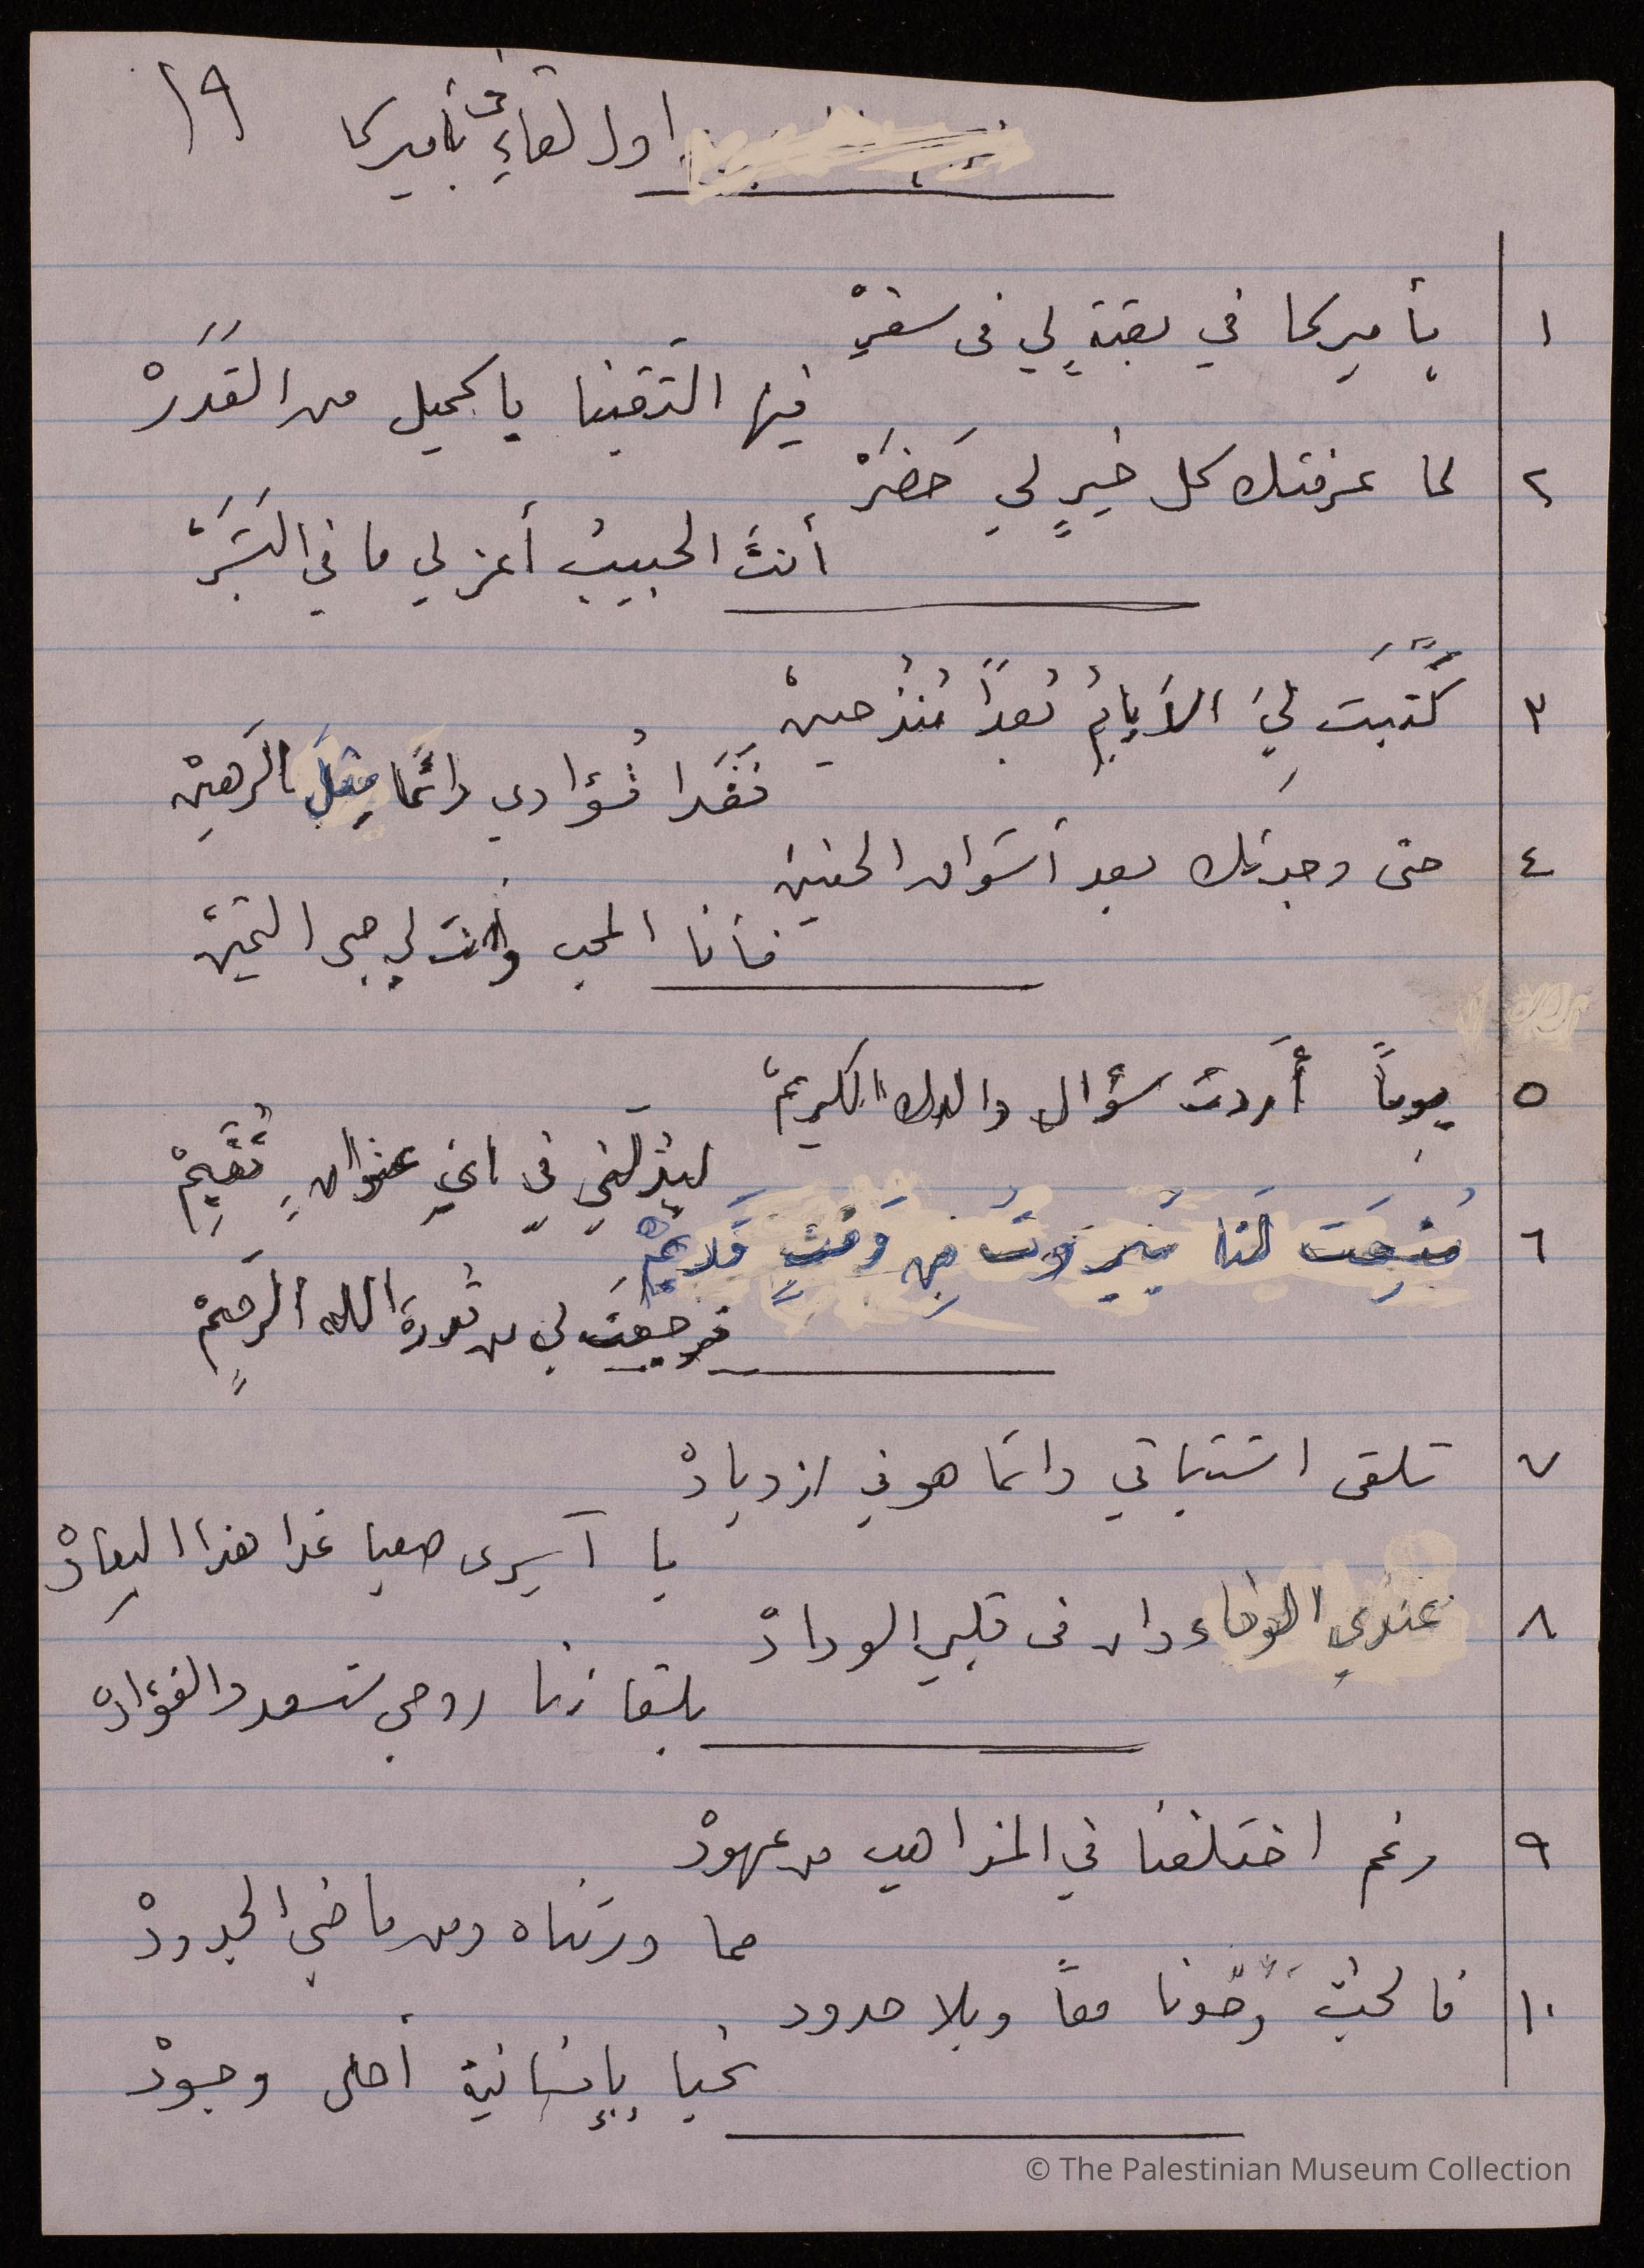 ١٩
اول لقاءٍ في بأميركا
١ بأميركا في بقعةٍ لي في سفرْ
فيها التقينا يا كحيل من القَدَرْ
٢ لما عرفتك كل خيرٍ لي حَضَرْ
أنتَ الحبيبُ أعز لي ما في البَشَرْ
٣ كَتَبَتْ لِيَ الأيامُ بُعداً مُنذُ حينْ
فَغَدا فُؤادي دائماً مِثلَ الرَهينْ
٤ حتى وجدتك بعد أشواق الحنين
فأنا المحب وأنت لي حبى الثمينْ
٥ يوماً أردت سؤال والدك الكريمْ
ليدلني في ايِ عنوانٍ تُقيمْ
٦ مُنِحَت لَنا بَيروتُ مِن وَقتٍ قَديمْ
فرجعت لي من قدرة الله الرحيمْ
٧ تلقى اشتياقي دائما هو في ازديادْ
يا آسرى صعبا غدا هذا البِعادْ
٨ عندي الوفاء دام في قلبي الودادْ
بلقائنا روحي تسعد والفؤادْ
٩ رغم اختلفنا في المذاهب من عهودْ
مما ورثناه ومن ماضي الجدودْ
١٠ فالحبُ وَحَّدنا معاً وبلا حدود
نحيا بإنسانية أحلى وجودْ
© The Palestinian Museum Collection